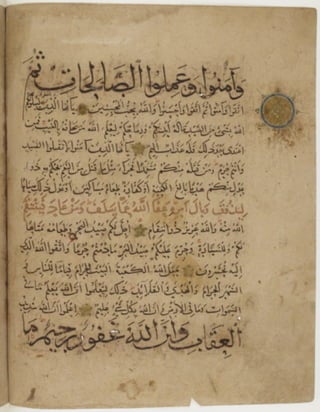 وآمنوا وعملوا الصالحات ثم
اتقوا وآمنوا ثم اتقوا وأحسنوا والله يحب المحسنين يا أيها الذين آمنوا ليبلونكم
الله بشيء من الصيد تناله أيديكم ورماحكم ليعلم الله من يخافه بالغيب فمن
اعتدى بعد ذلك فله عذاب أليم يا أيها الذين آمنوا لا تقتلوا الصيد
وأنتم حرم ومن قتله منكم متعمدا فجزاء مثل ما قتل من النعم يحكم به ذوا
عدل منكم هديا بالغ الكعبة أو كفارة طعام مساكين أو عدل ذلك صياما
ليذوق وبال أمره عفا الله عما سلف ومن عاد فينتقم
الله منه والله عزيز ذو انتقام أحل لكم صيد البحر وطعامه متاعا
لكم وللسيارة وحرم عليكم صيد البر ما دمتم حرما واتقوا الله الذي
إليه تحشرون جعل الله الكعبة البيت الحرام قياما للناس و
الشهر الحرام والهدي والقلائد ذلك لتعلموا أن الله يعلم ما في
السموات وما في الأرض وأن الله بكل شيء عليم اعلموا أن الله شديد
العقاب وأن الله غفور رحيم ما